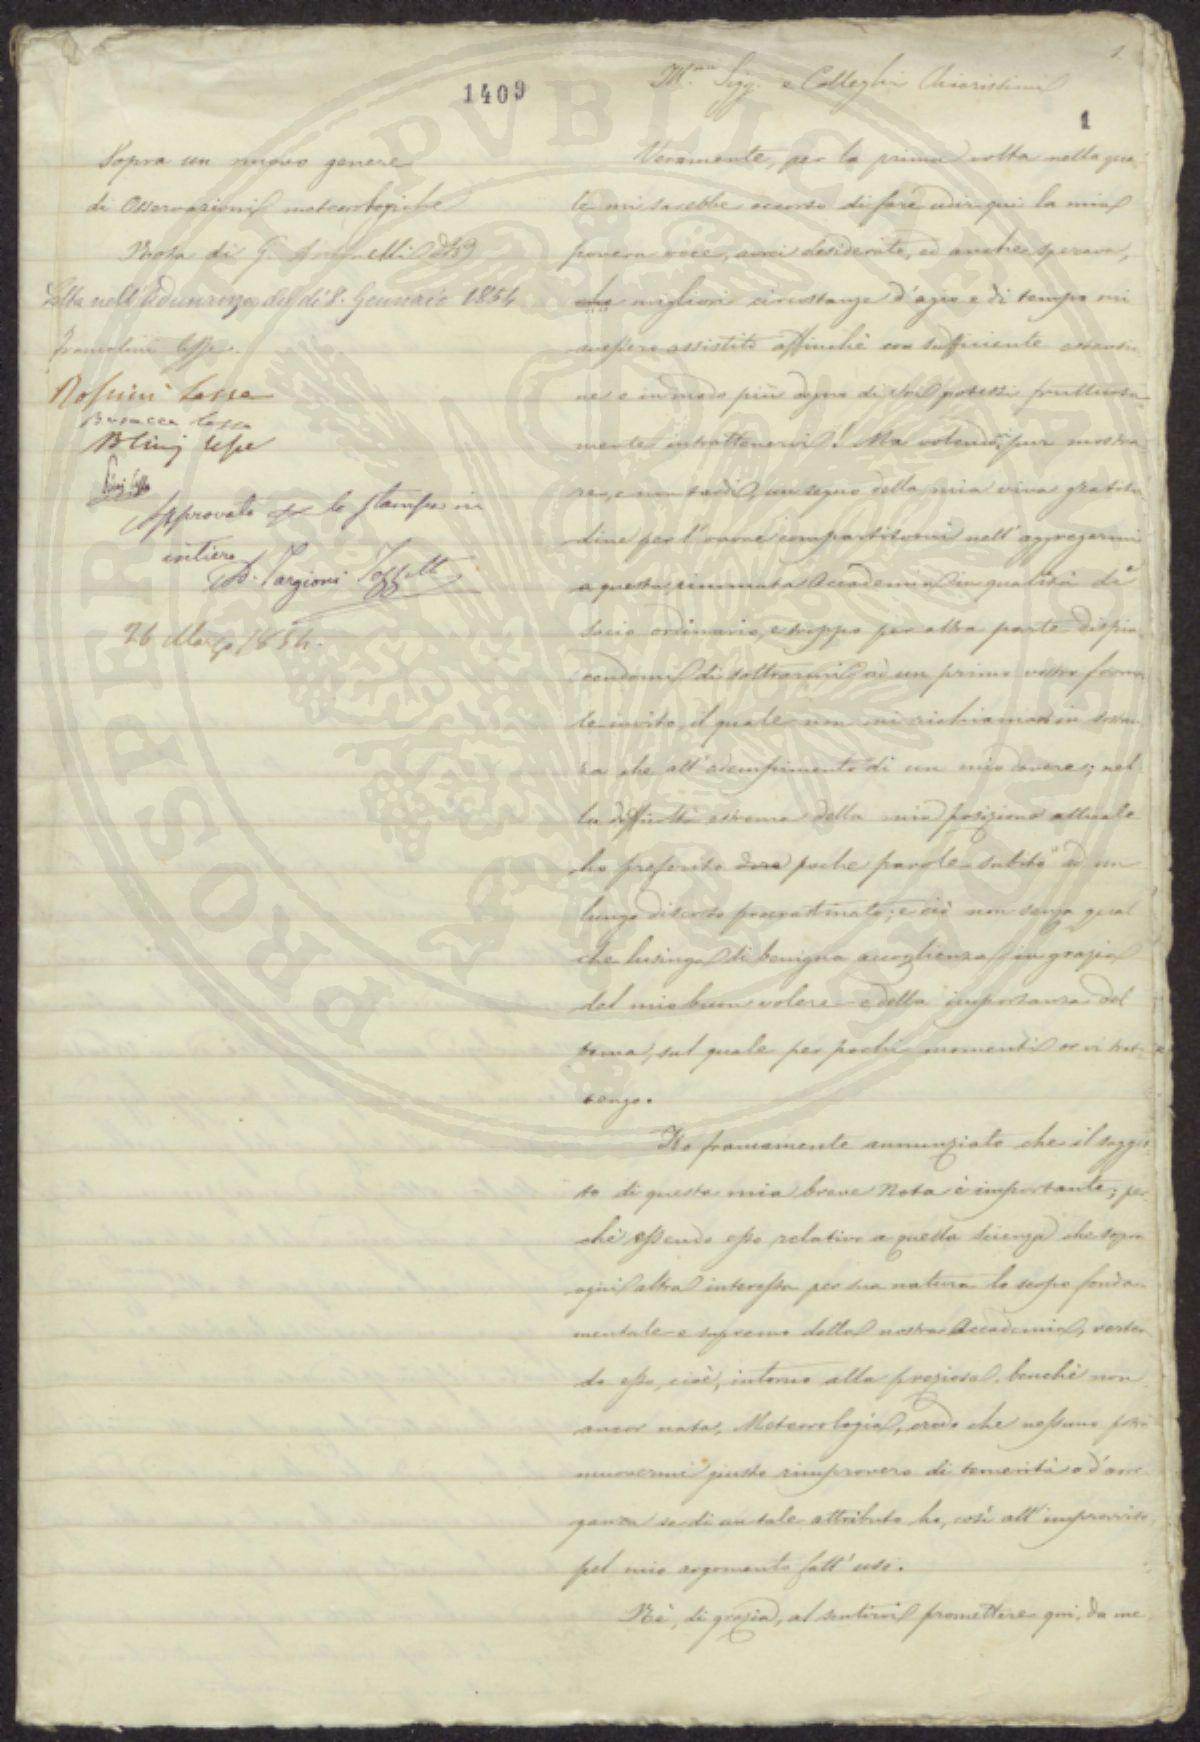 1409
1.
1
Sopra un nuovo genere
di Osservazioni meteorologiche
Nota di G. Antonelli
Letta nell'Adunanza del dì 8. Gennaio 1854
lesse.
lesse
Busacca lesse
lesse
Approvato per la stampa in
intiero
A. Targioni Tozzetti
26 Marzo 1854.
Ill.mi Sigg. e Colleghi Chiarissimi
Veramente, per la prima volta nella qua-
le mi sarebbe occorso di fare udir qui la mia
povera voce, avrei desiderato, ed anche sperava,
che migliori circostanze d'agio e di tempo mi
avessero assistito affinchè con sufficiente estensio-
ne e in modo più degno di Voi potessi fruttuosa-
mente intrattenervi! Ma volendo pur mostra-
re, e non tardi, un segno della mia viva gratitu-
dine per l'onore compartitomi nell'aggregarmi
a questa rinomata Accademia in qualità di
socio ordinario, e troppo per altra parte dispia-
cendomi di sottrarmi ad un primo vostro forma-
le invito, il quale non mi richiama in sostan-
za che all'adempimento di un mio dovere; nel-
la difficoltà estrema della mia posizione attuale
ho preferito poche parole subito ad un
lungo discorso procrastinato; e ciò non senza qual
che lusinga di benigna accoglienza in grazia
del mio buon volere e della importanza del
tema, sul quale per pochi momenti or vi trat-
tengo.
Ho francamente annunziato che il sogget-
to di questa mia breve Nota è importante; per-
chè essendo esso relativo a questa scienza che sopra
ogni altra interessa per sua natura lo scopo fonda-
mentale e supremo della nostra Accademia, verten-
do esso, cioè, intorno alla preziosa, benchè non
ancor nata, Meteorologia, credo che nessuno potrà
muovermi giusto rimprovero di temerità o d'arro-
ganza se di un tale attributo ho, così all'improvviso,
pel mio argomento fatt'uso.
Nè, di grazia, al sentirvi promettere qui, da me